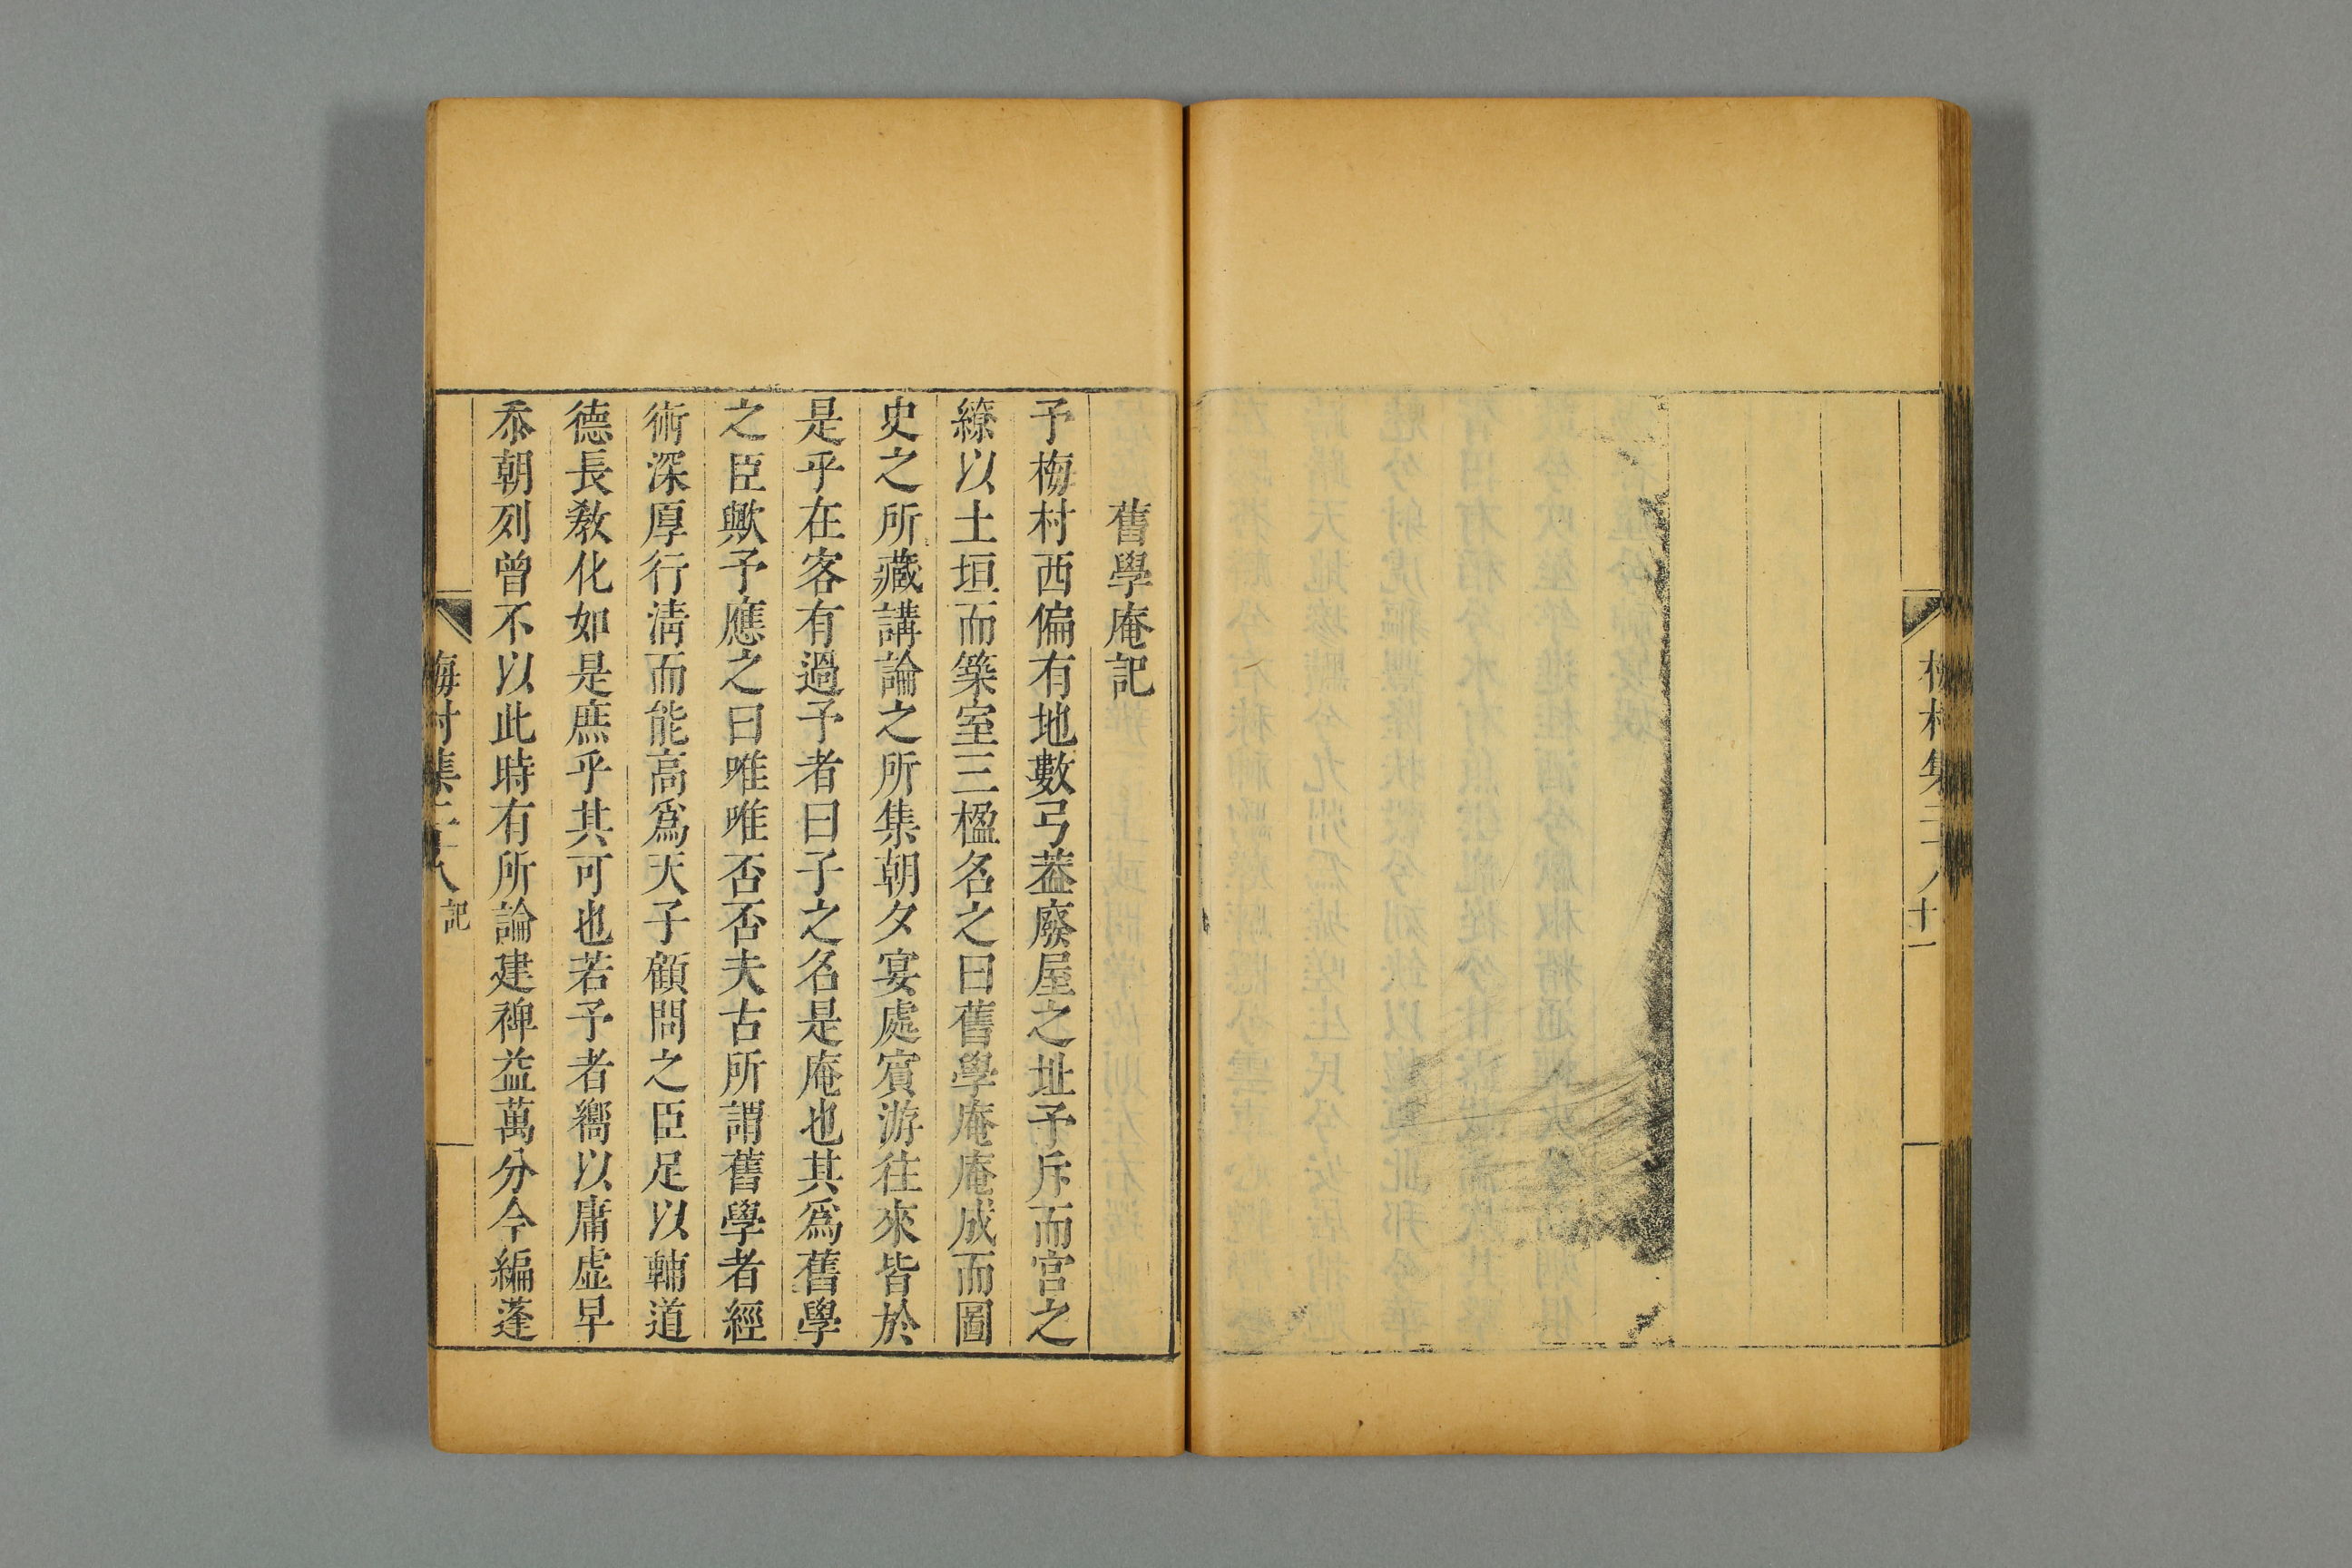 梅村集二十八 十一
舊學庵記
予梅村西偏有地數弓葢廢屋之址予斥而宮之
繚以土垣而築室三楹名之曰舊學庵庵成而圖
史之所藏講論之所集朝夕宴處賓游往來皆於
是乎在客有過予者曰子之名是庵也其爲舊學
之臣歟予應之曰唯唯否否夫古所謂舊學者經
術深厚行淸而能高爲天子顧問之臣足以輔道
德長敎化如是庶乎其可也若予者嚮以庸虛早
忝朝列曾不以此時有所論建裨益萬分今編蓬
梅村集二十八 記